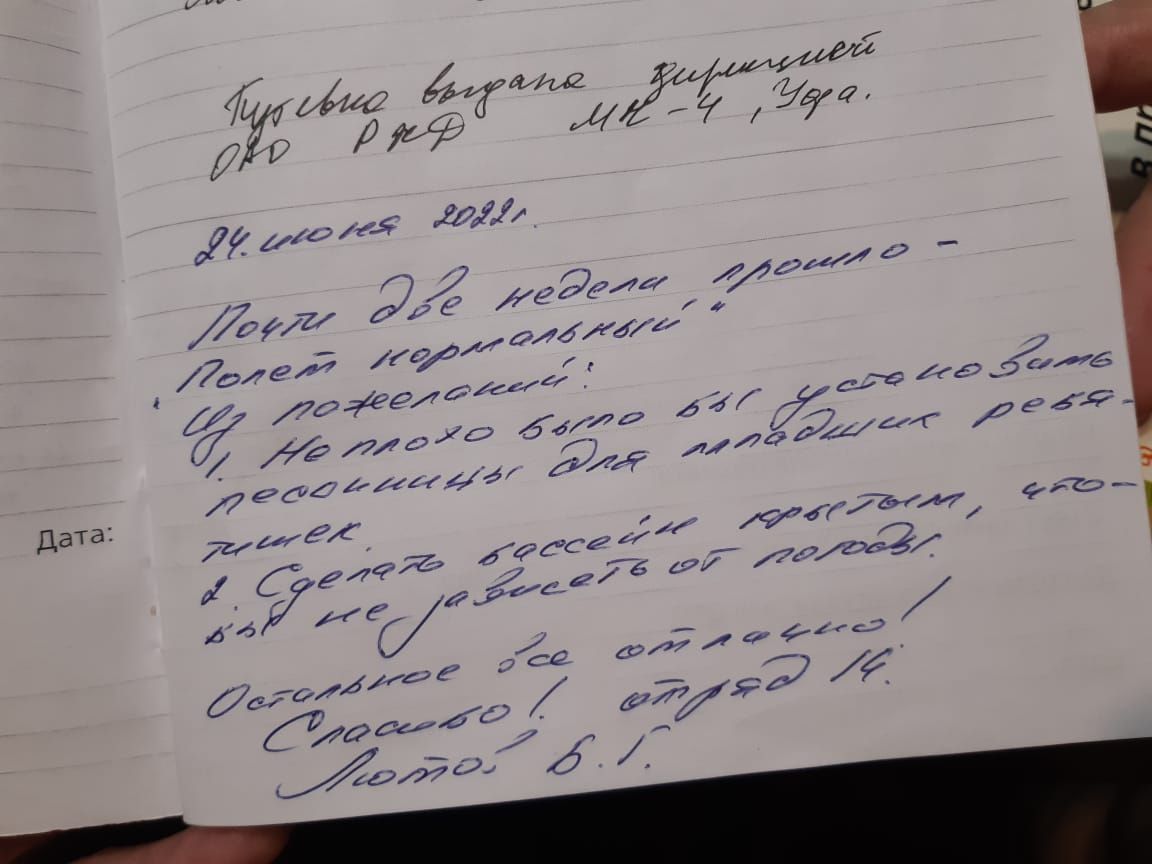 Путевка выдана дирекцией
ОАО РЖД МК-4, Уфа.
24. июня 2022г.
Почти две недели прошло -
"Полет нормальный"
Из пожеланий:
1. Неплохо было бы установить
песочницы для младших ребя-
тишек
2. Сделать бассейн крытым, что-
бы не зависеть от погоды.
Остальное все отлично!
Спасибо! отряд 14.
Лютов Б.Г.
Дата: